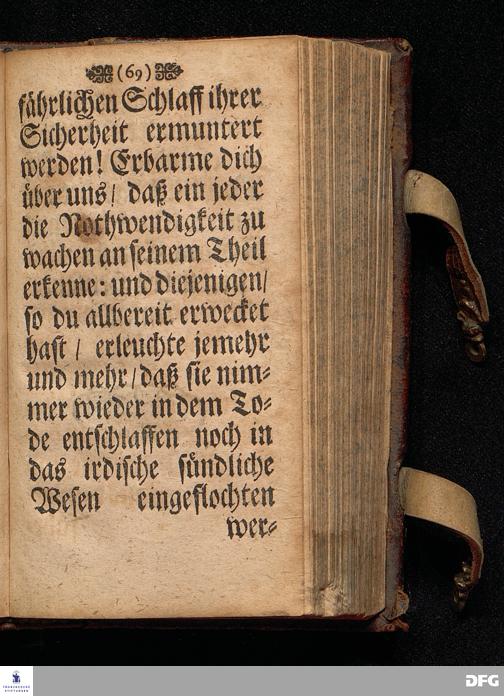 (69)
fährlichen Schlaff ihrer
Sicherheit ermuntert
werden! Erbarme dich
über uns/ daß ein jeder
die Nothwendigkeit zu
wachen an seinem Theil
erkenne: und diejenigen/
so du allbereit erwecket
hast/ erleuchte jemehr
und mehr/ daß sie nim-
mer wieder in dem To-
de entschlaffen noch in
das irdische sündliche
Wesen eingeflochten
wer-
FRANCKESCHE
STIFTUNGEN
DFG